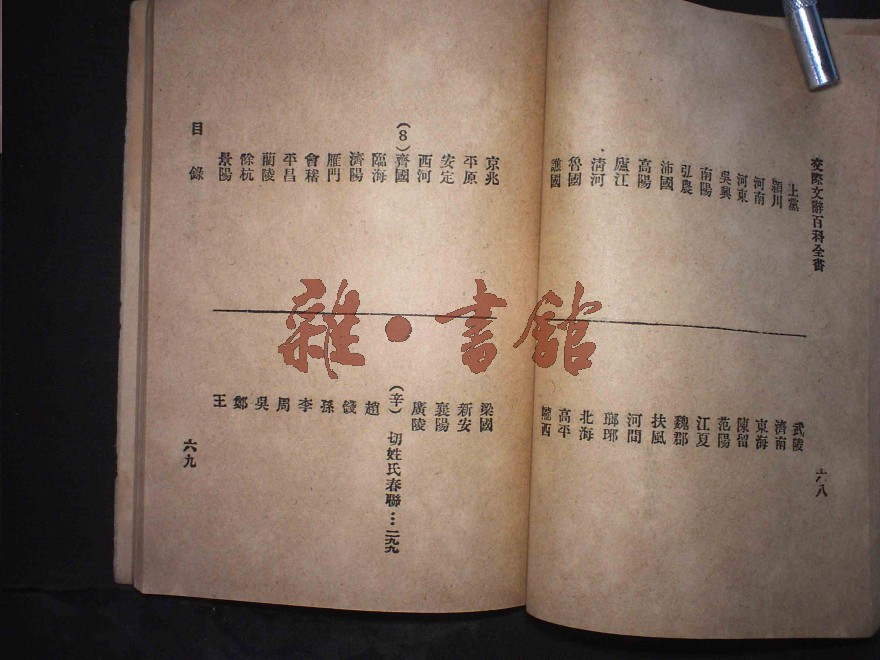 交際文辭百科全書
上黨
潁川
河南
河東
吳興
南陽
弘農
沛國
高陽
廬江
清河
魯國
譙國
武陵
濟南
東海
陳留
范陽
江夏
魏郡
扶風
河間
瑯琊
北海
高平
隴西
六八
京兆
平原
安定
西河
(8)齊國
臨海
濟陽
雁門
會稽
平昌
蘭陵
餘杭
景陽
目錄
梁國
新安
襄陽
廣陵
(辛)切姓氏春聯…二九九
趙
錢
孫
李
周
吳
鄭
王
六九
雜·書館